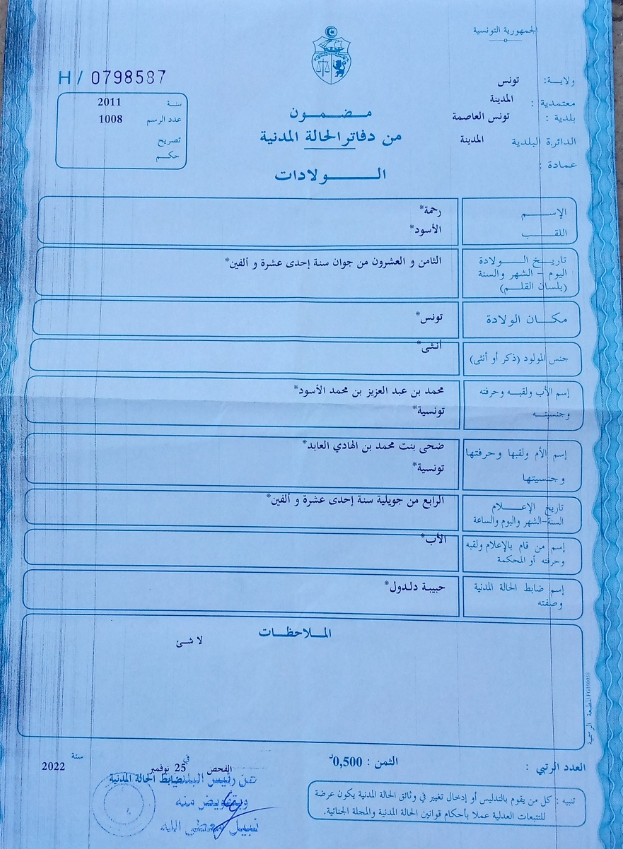 الجمهورية التونسية
H / 0798587
ولاية: تونس
معتمدية: المدينة
بلدية: تونس العاصمة
الدائرة البلدية المدينة
عمادة:
سنة 2011
عدد الرسم 1008
تصريح
حكم
مضمون
من دفاتر الحالة المدنية
الولادات
الإسم رحمة*
اللقب الأسود*
تاريخ الولادة الثامن و العشرون من جوان سنة إحدى عشرة و ألفين*
اليوم - الشهر والسنة
(بلسان القلم)
مكان الولادة تونس*
جنس المولود (ذكر أو أنثى) أنثى*
إسم الأب ولقبه وحرفته محمد بن عبد العزيز بن محمد الأسود*
وجنسيته تونسية*
إسم الأم ولقبها وحرفتها ضحى بنت محمد بن الهادي العابد*
وجنسيتها تونسية*
تاريخ الإعلام الرابع من جويلية سنة إحدى عشرة و ألفين*
السنة-الشهر واليوم والساعة
إسم من قام بالإعلام ولقبه الأب*
وحرفته أو المحكمة
إسم ضابط الحالة المدنية حبيبة دلدول*
وصفته
الملاحظات
لا شئ
المطبعة الرسمية
العدد الرتبي :
الثمن : 0,500د
الفحص في 25 نوفمبر سنة 2022
ضابط الحالة المدنية
عن رئيس البلدية
وبتفويض منه
نبيل
تنبيه : كل من يقوم بالتدليس أو إدخال تغيير في وثائق الحالة المدنية يكون عرضة
للتتبعات العدلية عملا بأحكام قوانين الحالة المدنية والمجلة الجنائية.